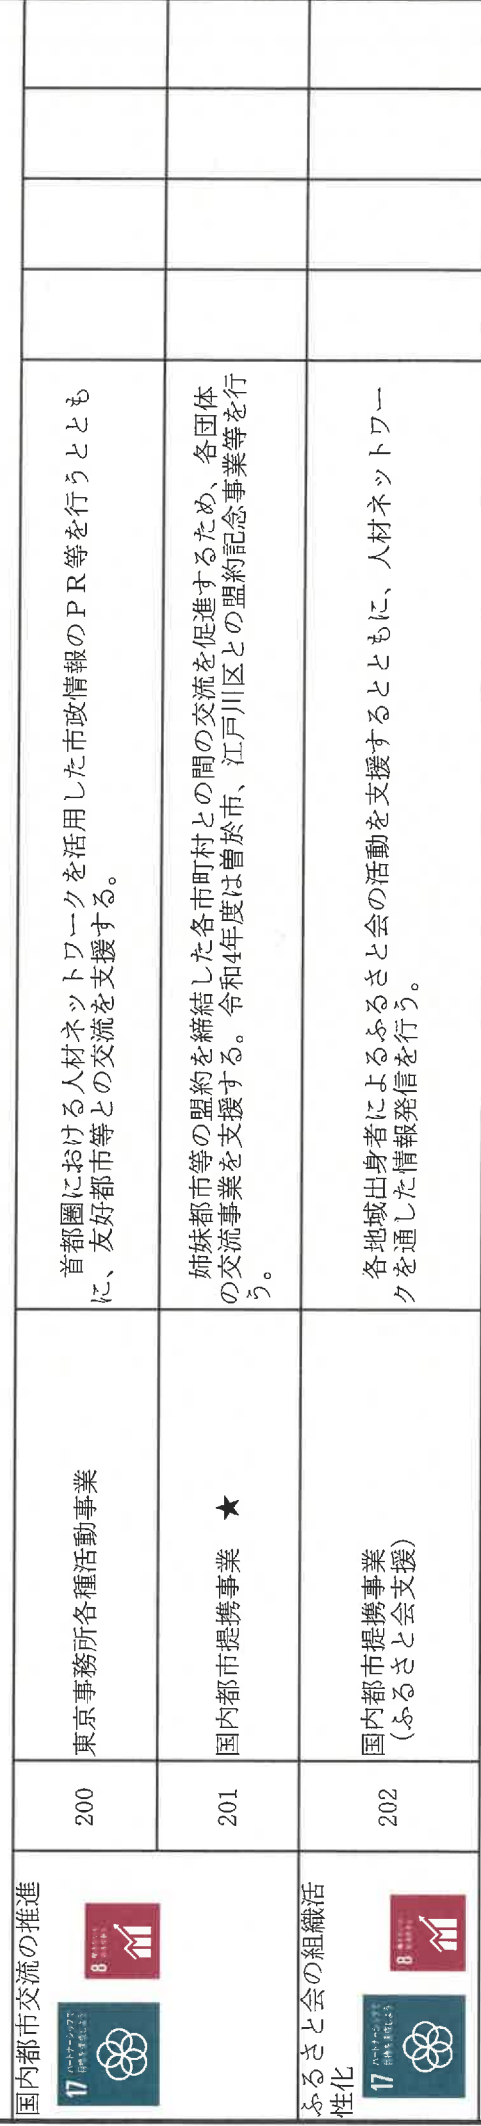 国内都市交流の推進
17 パートナーシップで
目標を達成しよう
8
200
東京事務所各種活動事業
首都圏における人材ネットワークを活用した市政情報のPR等を行うととも
に、友好都市等との交流を支援する。
201
国内都市提携事業 ★
姉妹都市等の盟約を締結した各市町村との間の交流を促進するため、各団体
の交流事業を支援する。令和4年度は曽於市、江戸川区との盟約記念事業等を行
う。
ふるさと会の組織活
性化
17 パートナーシップで
目標を達成しよう
8
202
国内都市提携事業
(ふるさと会支援)
各地域出身者によるふるさと会の活動を支援するとともに、人材ネットワー
クを通した情報発信を行う。